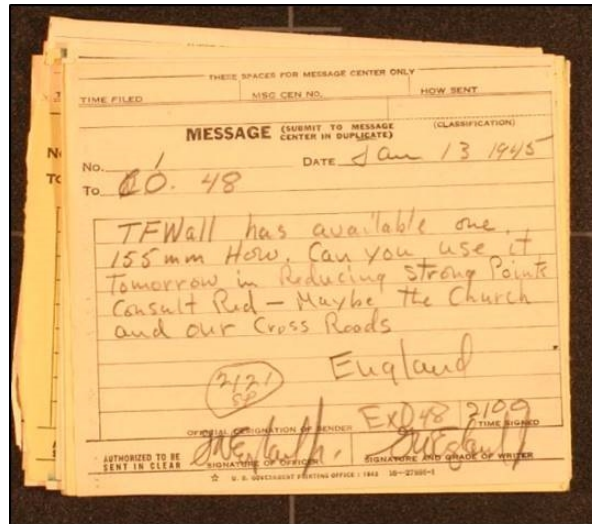 THESE SPACES FOR MESSAGE CENTER ONLY
TIME FILED MSG CEN NO. HOW SENT
MESSAGE (SUBMIT TO MESSAGE CENTER IN DUPLICATE) (CLASSIFICATION)
No. 1 DATE Jan 13 1945
To CO. 48
TFWall has available one
155mm How. Can you use it
Tomorrow in Reducing strong Points
Consult Red — Maybe the Church
and our Cross Roads
England
2121
OFFICIAL DESIGNATION OF SENDER ExO 48 2100
TIME SIGNED
AUTHORIZED TO BE SENT IN CLEAR
SIGNATURE OF OFFICER SIGNATURE AND GRADE OF WRITER
U. S. GOVERNMENT PRINTING OFFICE : 1942